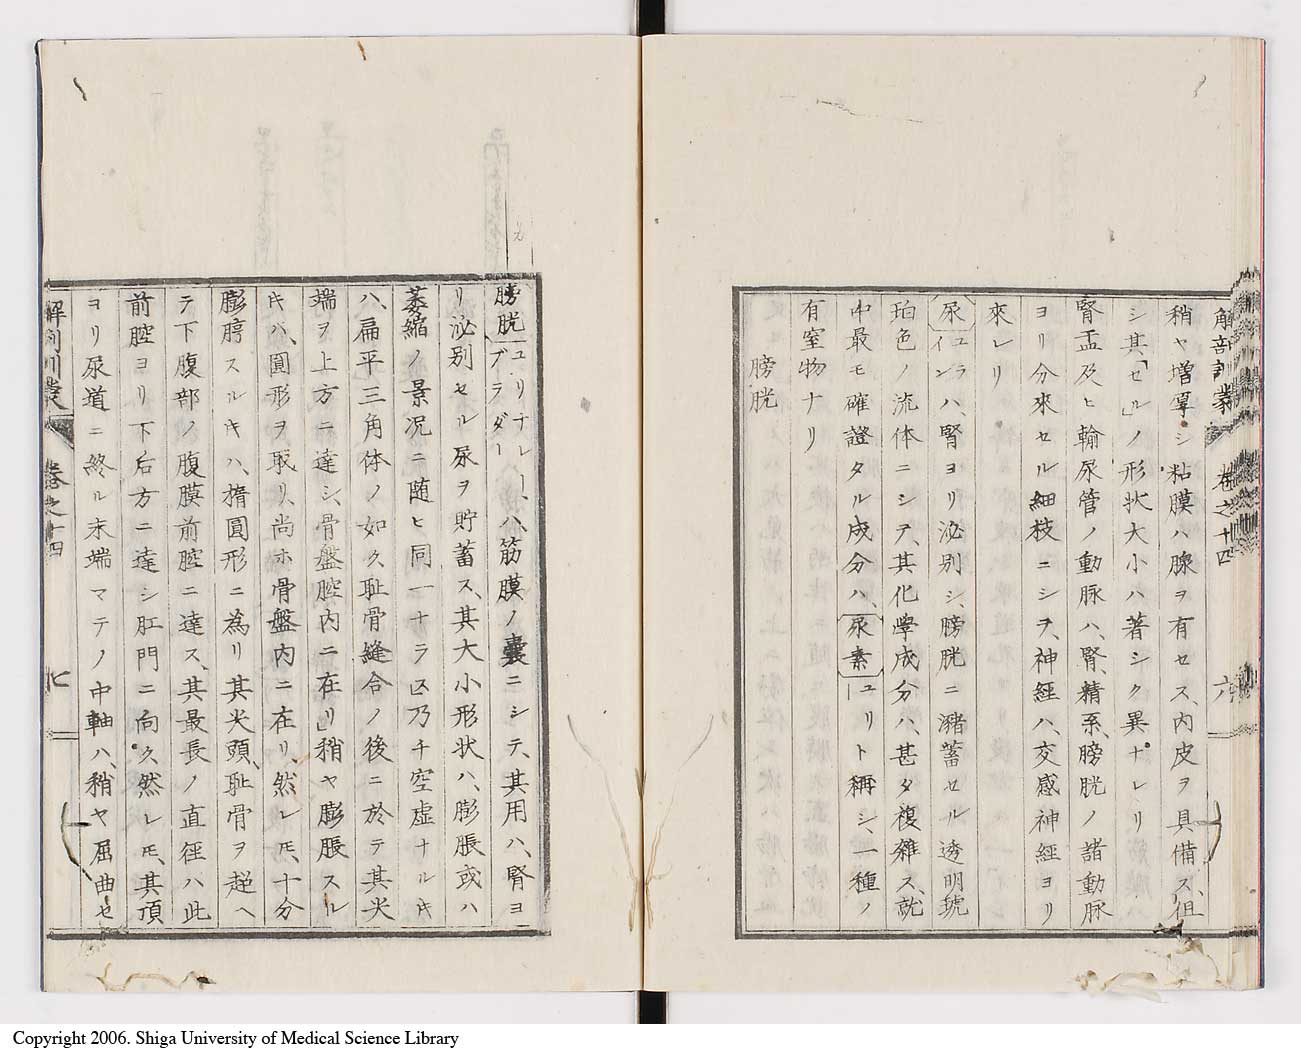 解剖訓蒙 卷之十四 六
稍ヤ増厚シ粘膜ハ腺ヲ有セス、内皮ヲ具備ス、但
シ其「セル」ノ形状大小ハ著シク異ナレリ
腎盂及ヒ輸尿管ノ動脉ハ、腎、精系、膀胱ノ諸動脉
ヨリ分來セル細枝ニシヲ、神經ハ、交感神經ヨリ
來レリ
尿ユライン ハ、腎ヨリ泌別シ、膀胱ニ瀦蓄セル透明琥
珀色ノ流体ニシテ、其化學成分ハ、甚タ複雜ス、就
中最モ確證タル成分ハ、尿素ユリート稱シ、一種ノ
有窒物ナリ
膀胱
膀胱ユリナレーブラダー ハ、筋膜ノ囊ニシテ、其用ハ、腎ヨ
リ泌別セル尿ヲ貯蓄ス、其大小形状ハ、膨脹或ハ
萎縮ノ景況ニ随ヒ同一ナラス乃チ空虚ナルキ
ハ、扁平三角体ノ如ク耻骨縫合ノ後ニ於テ其尖
端ヲ上方ニ達シ、骨盤腔内ニ在リ」稍ヤ膨脹スル
キハ、圓形ヲ取リ、尚ホ骨盤内ニ在リ、然レ𪜈、十分
膨脝スルキハ、楕圓形ニ為リ其尖頭、耻骨ヲ超ヘ
テ下腹部ノ腹膜前腔ニ達ス、其最長ノ直徑ハ此
前腔ヨリ下后方ニ達シ肛門ニ向ク、然レ𪜈、其頂
ヨリ尿道ニ終ル末端マテノ中軸ハ、稍ヤ屈曲セ
解剖訓蒙 卷之十四 七
Copyright 2006. Shiga University of Medical Science Library